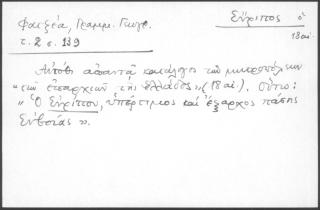 Φατζέα, Γραμμ. Γεωγρ.
τ. 2 σ. 139
Εὔριπος ὁ
18 αἰ.
Αὐτόθι ἀπαντᾶ κατάλογος τῶν μητροπόλεων
"τῶν ἐπαρχιῶν τῆς Ἑλλάδος" (18 αἰ.). Οὕτω:
"Ὁ Εὐρίπου, ὑπέρτιμος καὶ ἔξαρχος πάσης
Εὐβοίας".